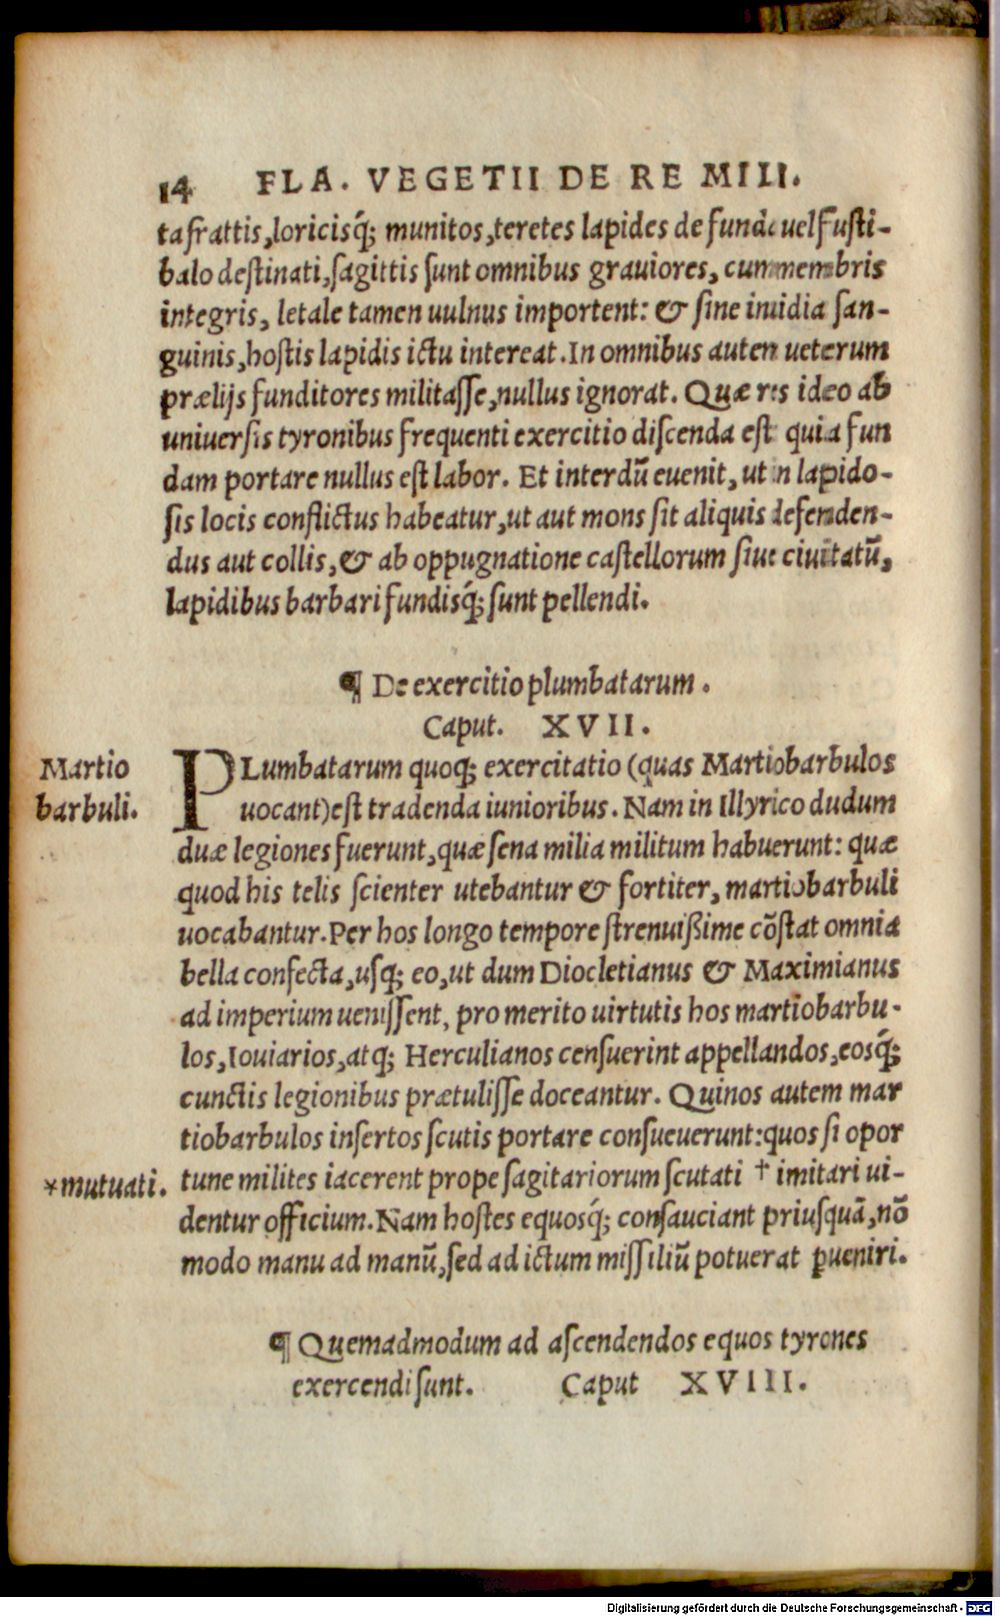 14 FLA. VEGETII DE RE MILI.
tafrattis, loricisq́; munitos, teretes lapides de funda uel fusti-
balo destinati, sagittis sunt omnibus grauiores, cum membris
integris, letale tamen uulnus importent: & sine inuidia san-
guinis, hostis lapidis ictu intereat. In omnibus autem ueterum
prælijs funditores militasse, nullus ignorat. Quæ res ideo ab
uniuersis tyronibus frequenti exercitio discenda est quia fun
dam portare nullus est labor. Et interdū euenit, ut in lapido-
sis locis conflictus habeatur, ut aut mons sit aliquis defenden-
dus aut collis, & ab oppugnatione castellorum siue ciuitatū,
lapidibus barbari fundisq́; sunt pellendi.
¶ De exercitio plumbatarum.
Caput. XVII.
Martio
barbuli.
PLumbatarum quoq; exercitatio (quas Martiobarbulos
uocant) est tradenda iunioribus. Nam in Illyrico dudum
duæ legiones fuerunt, quæ sena milia militum habuerunt: quæ
quod his telis scienter utebantur & fortiter, martiobarbuli
uocabantur. Per hos longo tempore strenuißime cōstat omnia
bella confecta, usq; eo, ut dum Diocletianus & Maximianus
ad imperium uenissent, pro merito uirtutis hos martiobarbu-
los, Iouiarios, atq; Herculianos censuerint appellandos, eosq́;
cunctis legionibus prætulisse doceantur. Quinos autem mar
tiobarbulos insertos scutis portare consueuerunt: quos si opor
*mutuati. tune milites iacerent prope sagitariorum scutati † imitari ui-
dentur officium. Nam hostes equosq́; consauciant priusquā, nō
modo manu ad manū, sed ad ictum missiliū potuerat ꝑueniri.
¶ Quemadmodum ad ascendendos equos tyrones
exercendi sunt. Caput XVIII.
Digitalisierung gefördert durch die Deutsche Forschungsgemeinschaft - DFG